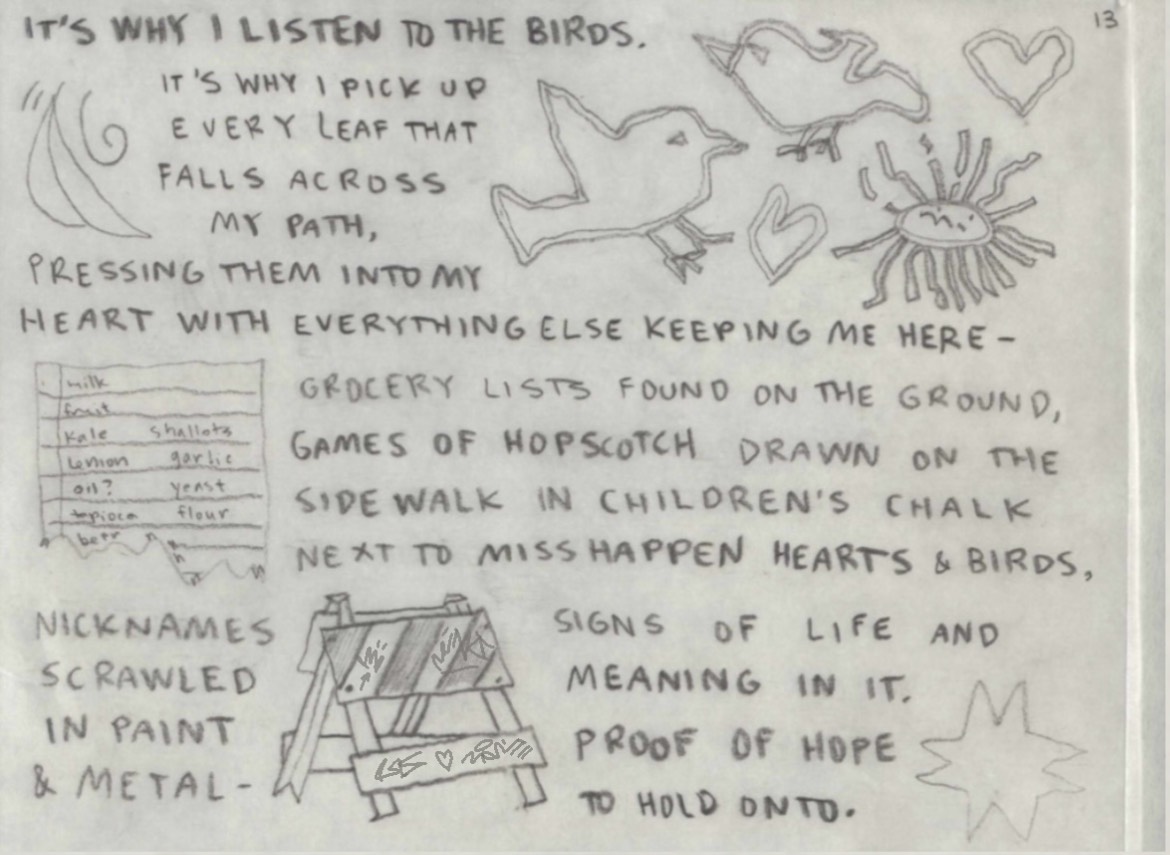 13
IT'S WHY I LISTEN TO THE BIRDS.
IT'S WHY I PICK UP
EVERY LEAF THAT
FALLS ACROSS
MY PATH,
PRESSING THEM INTO MY
HEART WITH EVERYTHING ELSE KEEPING ME HERE-
milk
fruit
kale shallots
lemon garlic
oil? yeast
tapioca flour
GROCERY LISTS FOUND ON THE GROUND,
GAMES OF HOPSCOTCH DRAWN ON THE
SIDEWALK IN CHILDREN'S CHALK
NEXT TO MISSHAPPEN HEARTS & BIRDS,
NICKNAMES
SCRAWLED
IN PAINT
& METAL-
SIGNS OF LIFE AND
MEANING IN IT.
PROOF OF HOPE
TO HOLD ONTO.